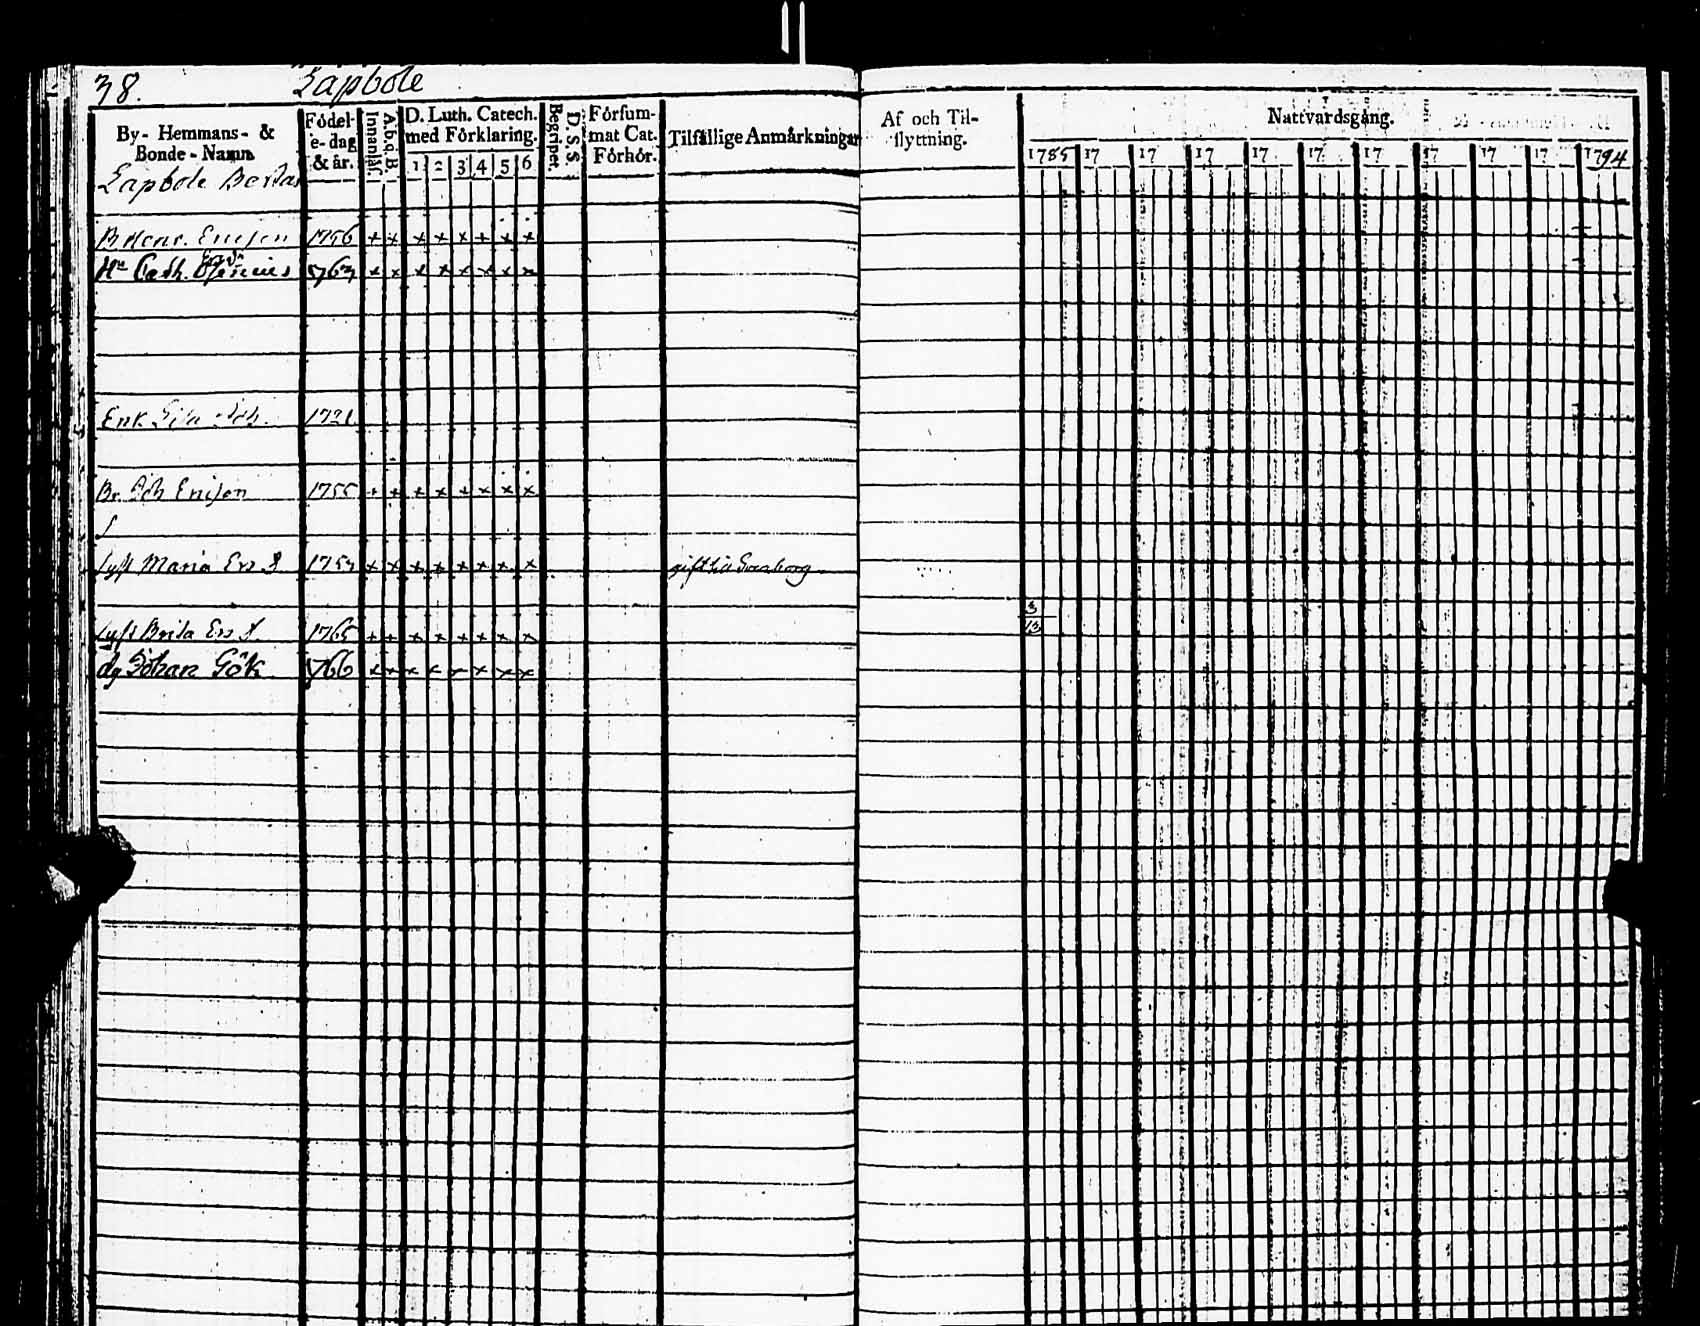 38.
Lapbole
By- Hemmans- &
Bonde-Namn
Födel-
se-dag
& år.
Innanläs.
A.b.q.B.
D. Luth. Catech.
med Förklaring.
1 2 3 4 5 6
Begripet.
D. S. S.
Försum-
mat Cat.
Förhör.
Tilfällige Anmärkningar
Af och Til-
flyttning.
Nattvardsgång.
1785 17 17 17 17 17 17 17 17 17 1794
Lapbole
B Henr. Ericson 1756 + + + + + + + +
Hu Cath. 1763 + + + + + + + +
Enk 1721
Br. Joh Ericson 1755 + + + + + + + +
Syst Maria Ers D 1753 + + + + + + + + gift til
3
13
Syst Brita Ers D. 1765 + + + + + + + +
dg Johan Gök 1766 + + + + + + + +